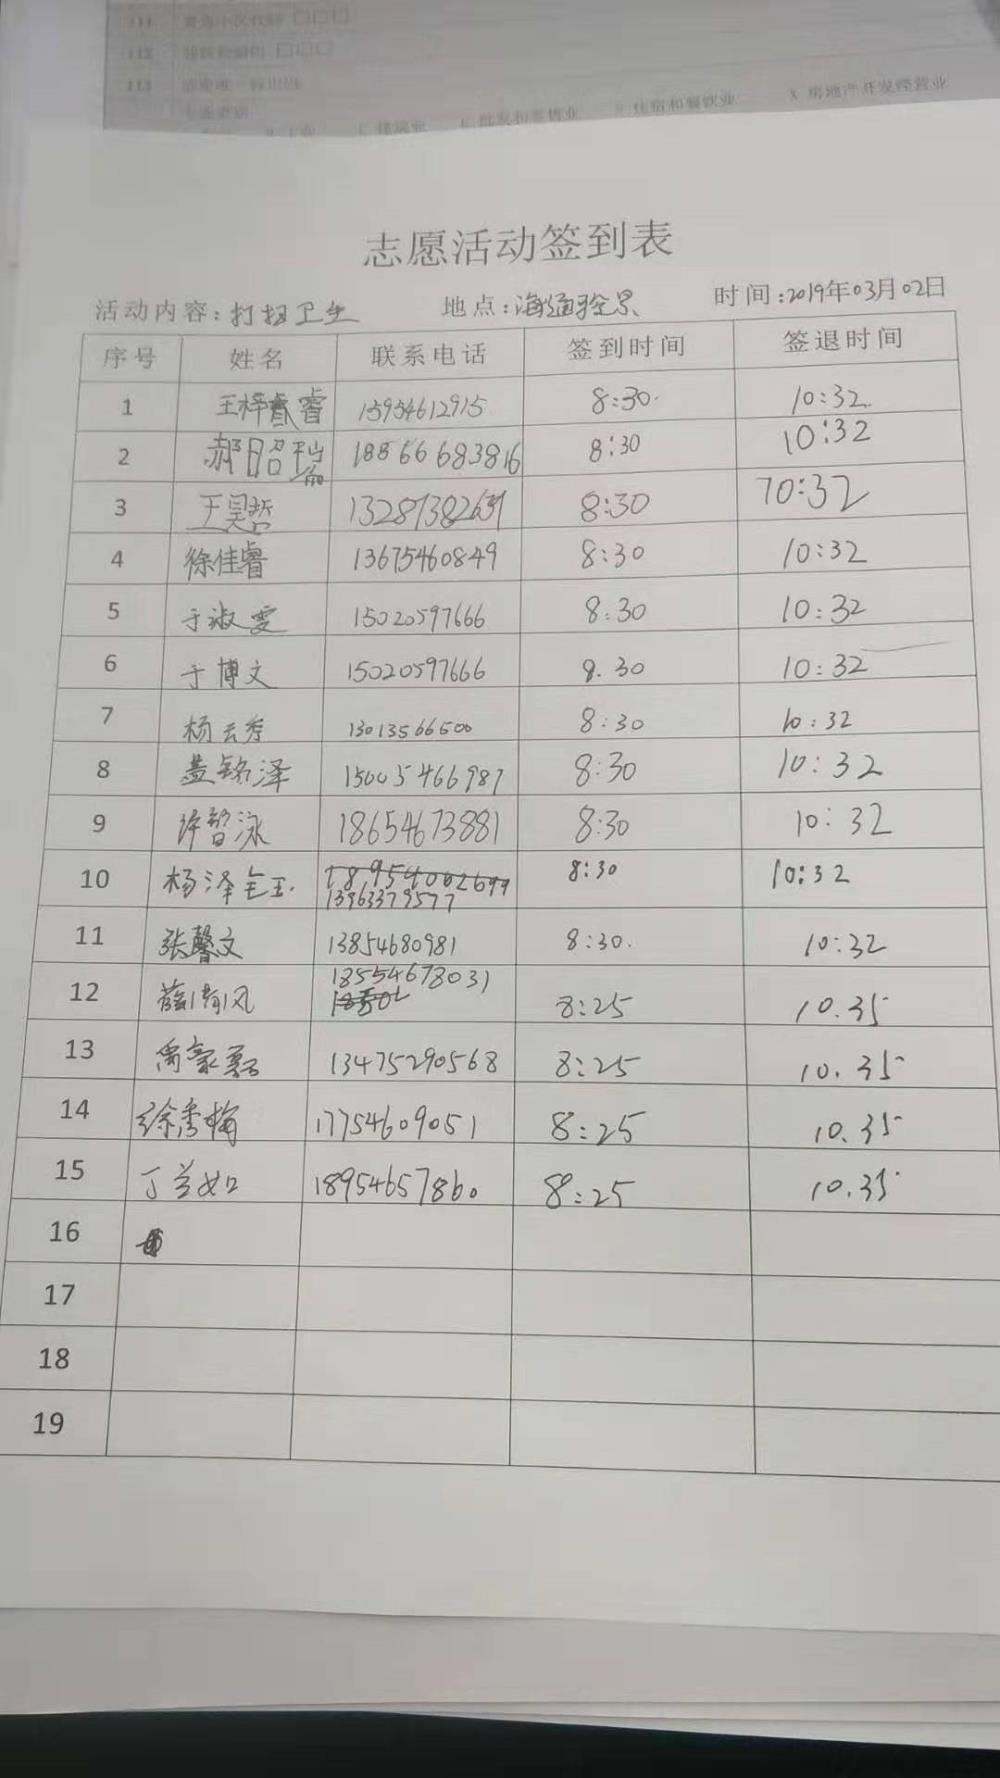 111
112
113
X 房地产开发经营业
志愿活动签到表
活动内容:打扫卫生 地点:海通 时间:2019年03月02日
序号 姓名 联系电话 签到时间 签退时间
1 王梓睿 15954612915 8:30. 10:32.
2 郝昭瑞 18866683816 8:30 10:32
3 王昊哲 13287382631 8:30 10:32
4 徐佳睿 13675460849 8:30 10:32
5 于淑雯 15020597666 8:30 10:32
6 于博文 15020597666 8.30 10:32
7 杨云秀 13013566500 8:30 10:32
8 盖铭泽 15005466987 8:30 10:32
9 许智泳 18654673881 8:30 10:32
10 杨泽钰 13963379577 8:30 10:32
11 张馨文 13854680981 8:30. 10:32
12 薛清风 18554678031 8:25 10.35
13 13475290568 8:25 10.35
14 徐秀梅 17754609051 8:25 10.35
15 丁兰如 18954657860 8:25 10.35
16
17
18
19